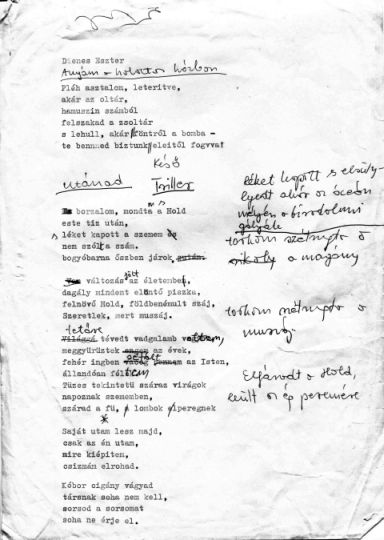 Dienes Eszter
Anyám a kolostor közben
Pléh asztalom, leterítve,
akár az oltár,
hamuszín számból
felszakad a zsoltár
s lehull, akár föntről a bomba -
te benned bíztunk eleitől fogyva!
Késő
utánad Triller
borzalom, mondta a Hold
este tíz után,
léket kapott a szemem
nem szólt a szám.
bogyóbarna őszben járok,
változás jött az életemben,
dagály mindent elöntő piszka,
felnövő Hold, földbenémult száj,
Szeretlek, mert muszáj.
létére
tévedt vadgalamb
meggyűrűztek az évek,
fehér ingben az Isten,
állandóan
Tüzes tekintetű száraz virágok
napoznak szememben,
szárad a fű, lombok peregnek
*
Saját utam lesz majd,
csak az én utam,
mire kiépítem,
csizmám elrohad.
Kóbor cigány vágyad
társnak soha nem kell,
sorsod a sorsomat
soha ne érje el.
léket kapott s elsüly-
lyedt akár az óceán
mélyén a birodalmi
gályák
torkom szétnyitó
a magány
torkom
muszáj
Elfáradt a Hold,
leült az ég peremére